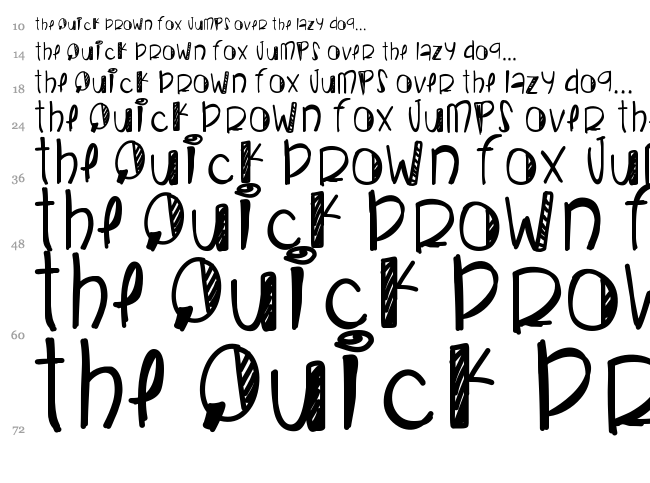 10 the Quick brown fox jumps over the lazy dog...
14 the Quick brown fox jumps over the lazy dog...
18 the Quick brown fox jumps over the lazy dog...
24 the Quick brown fox jumps over th
36 the Quick brown fox jum
48 the Quick brown f
60 the Quick brow
72 the Quick br